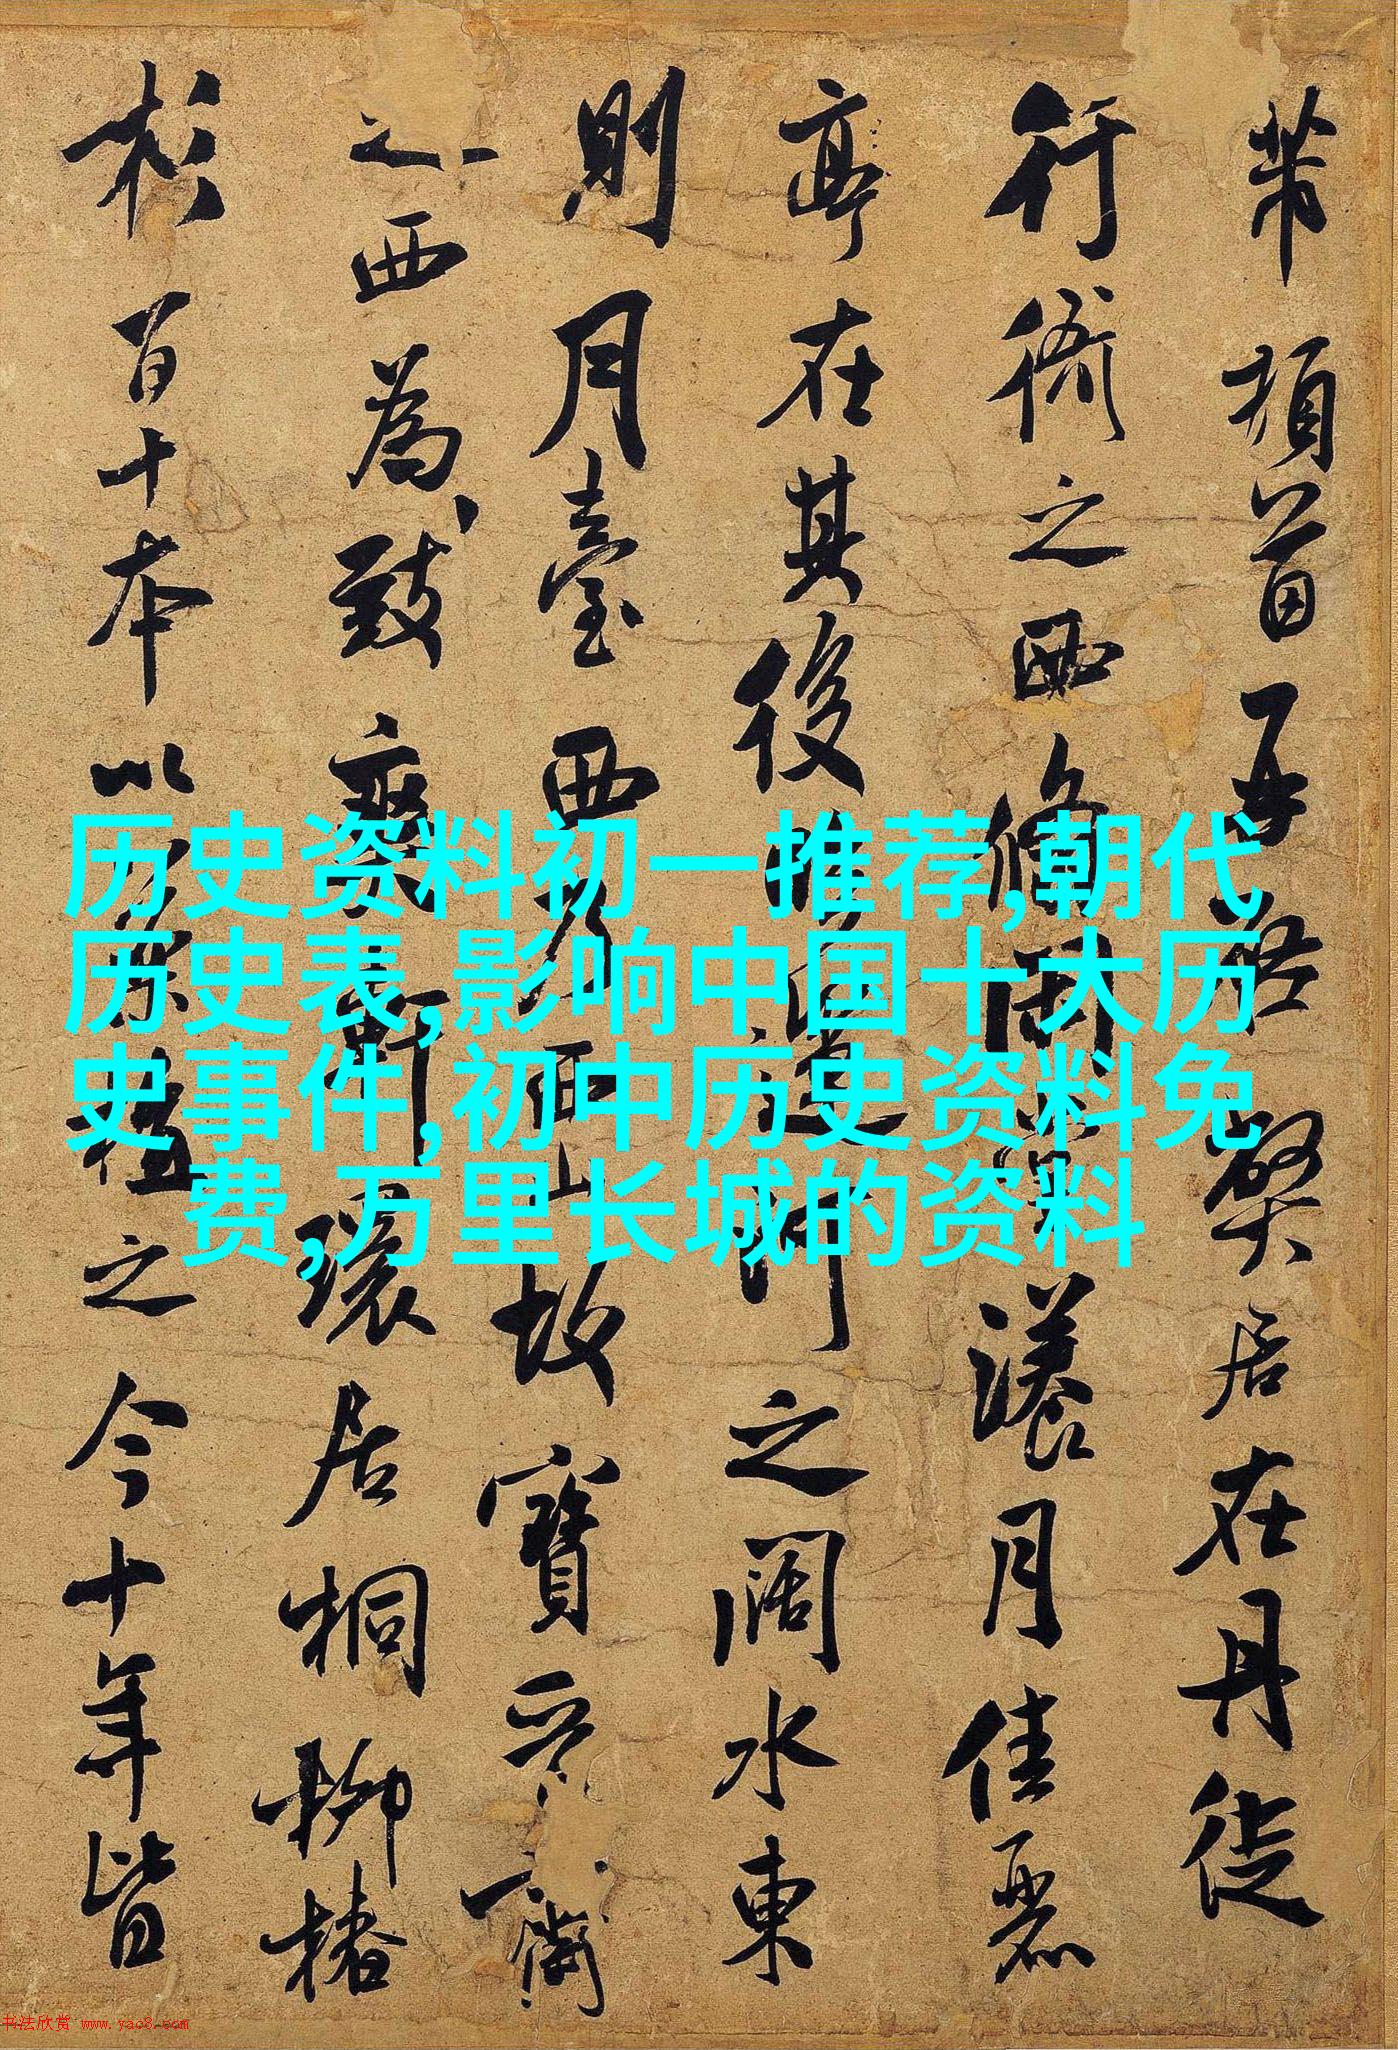 芾頓首再啓弊居在丹徒
行衙之西翛閑堂漾月佳麗
亭在其後臨運河之闊水東
則月臺西乃西山故寶晉齋
之西為致爽軒環居桐柳椿
杉百十本以藥植之今十年皆
历史资料初一推荐,朝代
历史表,影响中国十大历
史事件,初中历史资料免
费,万里长城的资料
书法欣赏 www.yac8.com